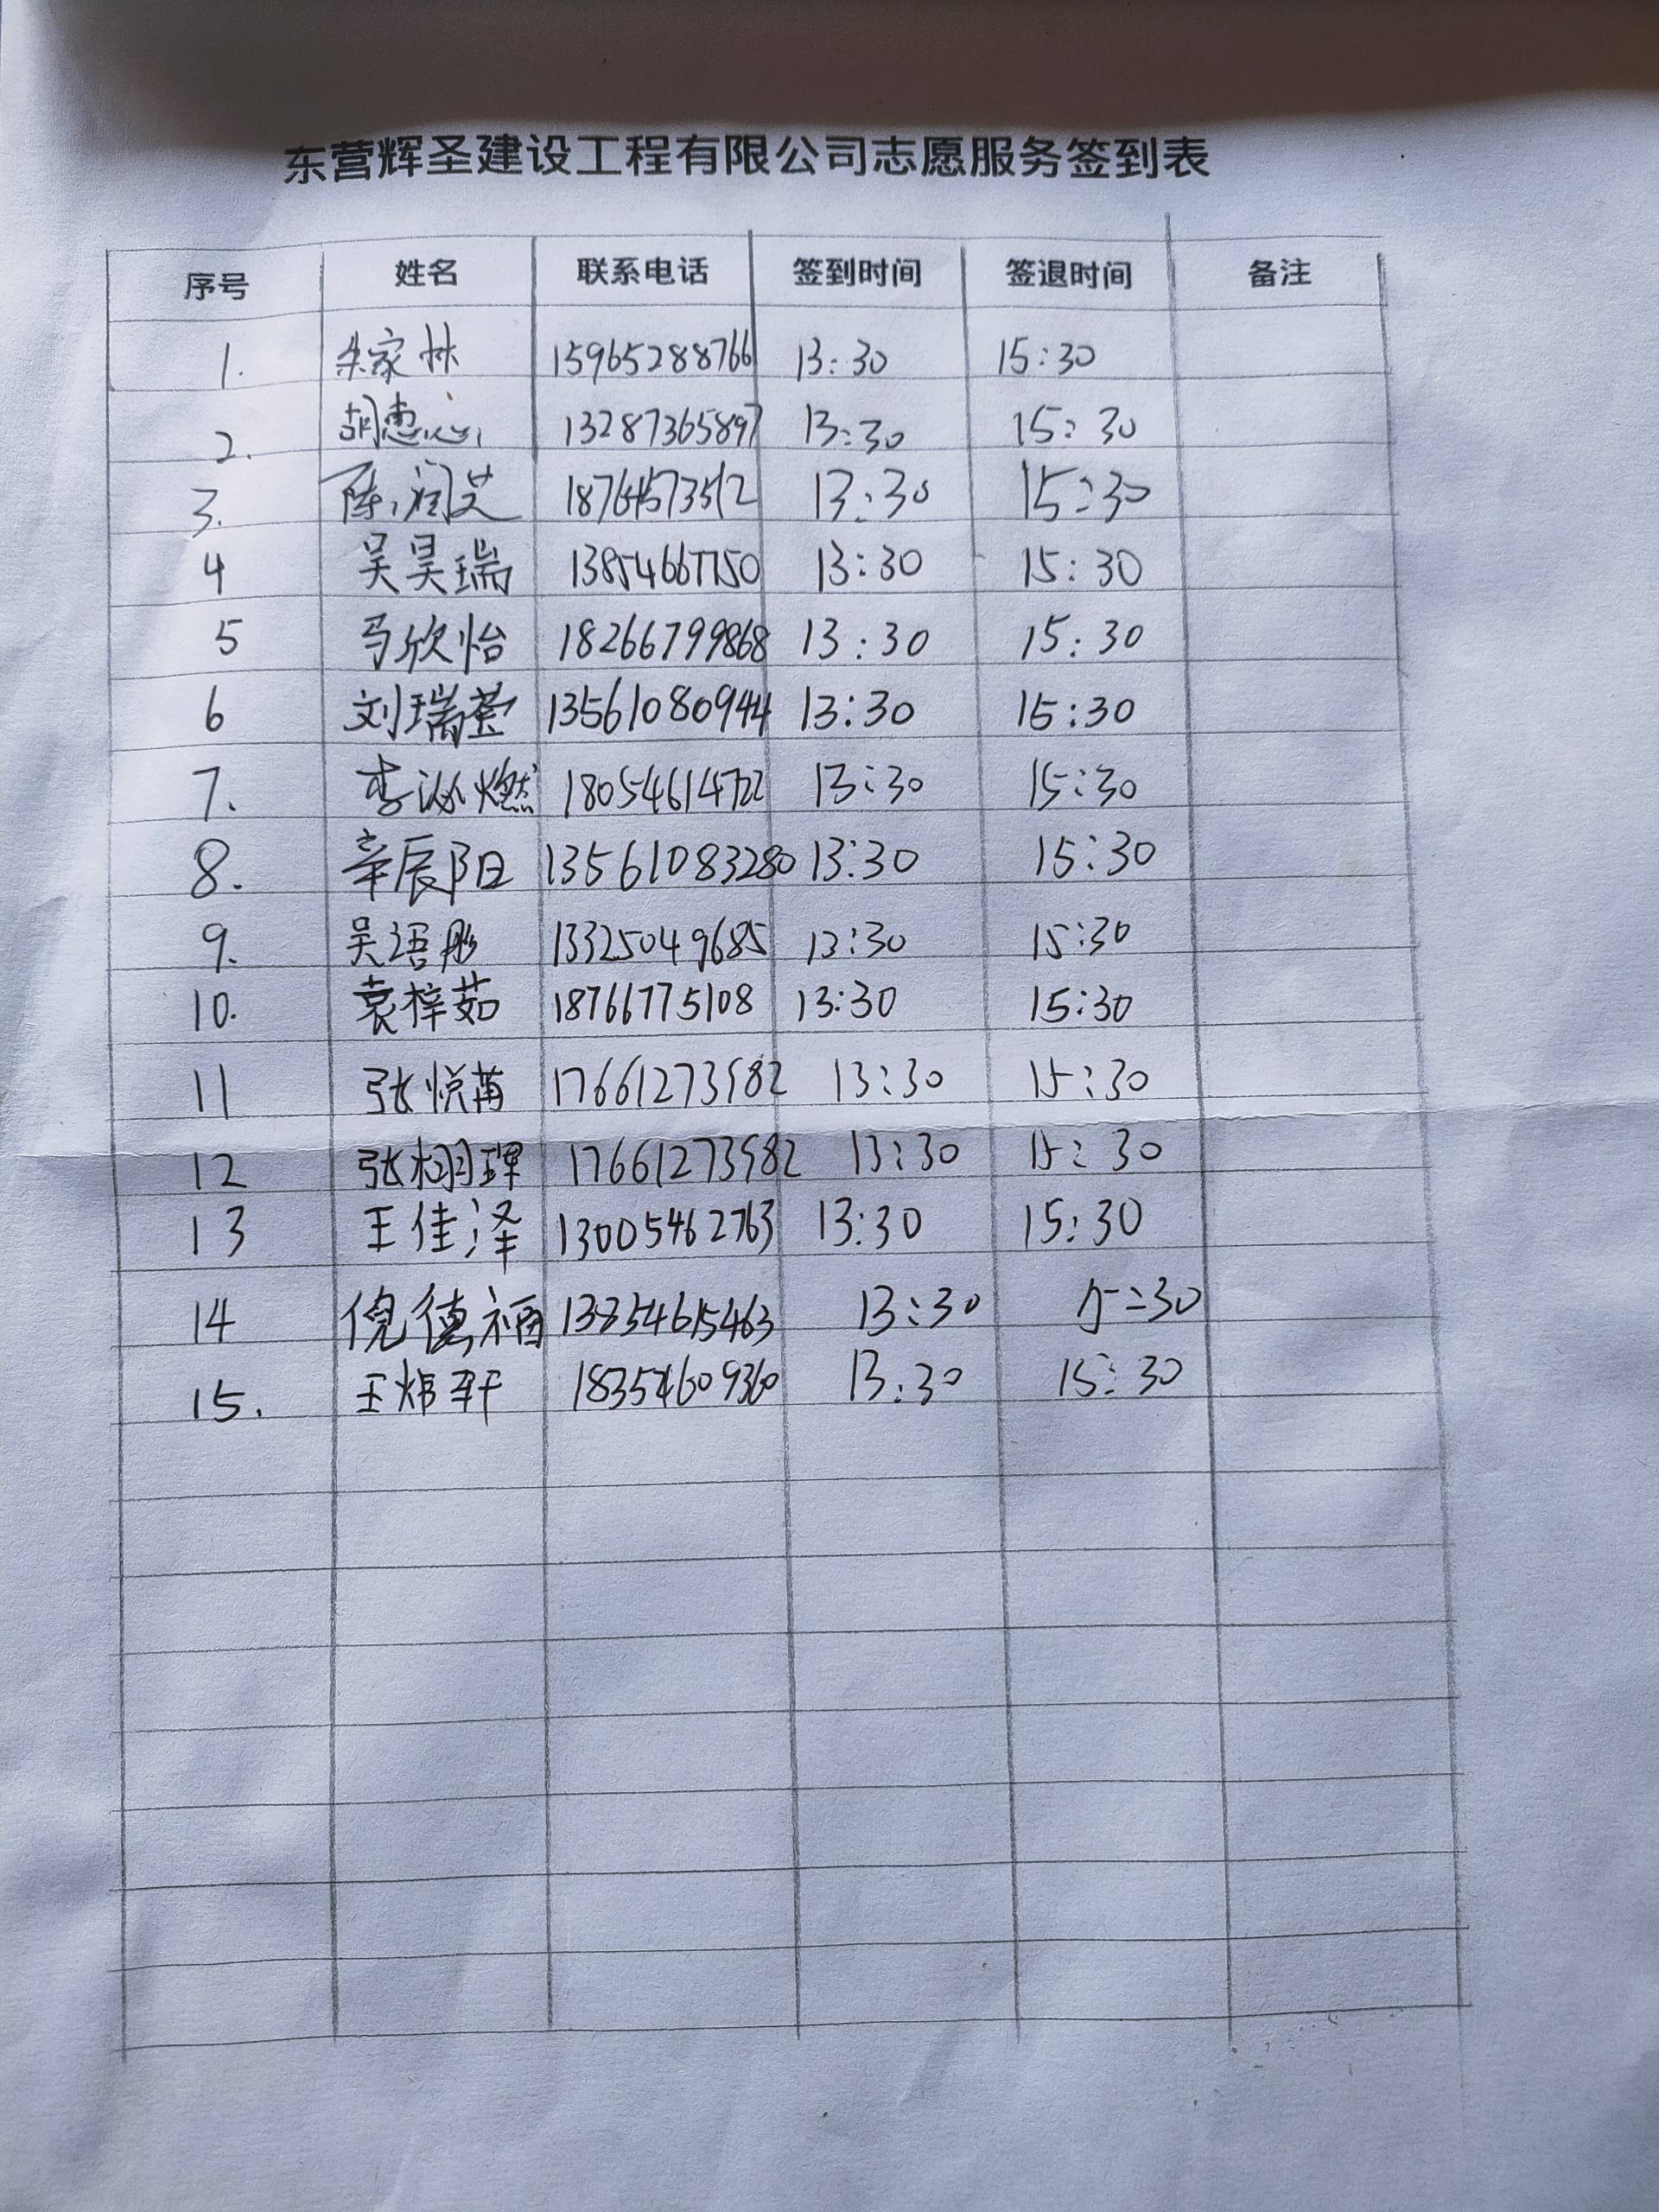 东营辉圣建设工程有限公司志愿服务签到表
序号 姓名 联系电话 签到时间 签退时间 备注
1. 朱家林 15965288766 13:30 15:30
2. 胡惠心 13287365897 13:30 15:30
3. 陈润艾 13:30 15:30
4 吴昊瑞 13854667750 13:30 15:30
5 马欣怡 18266799868 13:30 15:30
6 刘瑞萱 13561080944 13:30 15:30
7. 李泳燃 18054614722 13:30 15:30
8. 辛辰阳 13561083280 13:30 15:30
9. 吴语彤 13325049685 13:30 15:30
10. 袁梓茹 18766775108 13:30 15:30
11 张悦苒 17661273582 13:30 15:30
12 张栩琿 17661273582 13:30 15:30
13 王佳泽 13005462763 13:30 15:30
14 倪德福 13:30 15:30
15. 王炜轩 18354609360 13:30 15:30